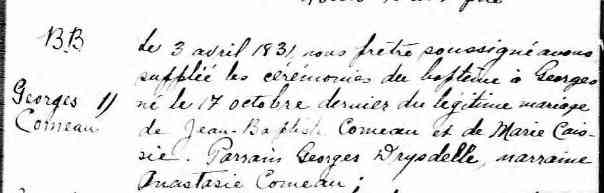 BB
Georges
Comeau
Le 3 avril 1831 nous prêtre soussigné avons
supplée les cérémonies du baptême à Georges
né le 17 octobre dernier du légitime mariage
de Jean-Baptiste Comeau et de Marie Cais-
sie. Parrain Georges Drysdelle, marraine
Anastasie Comeau;